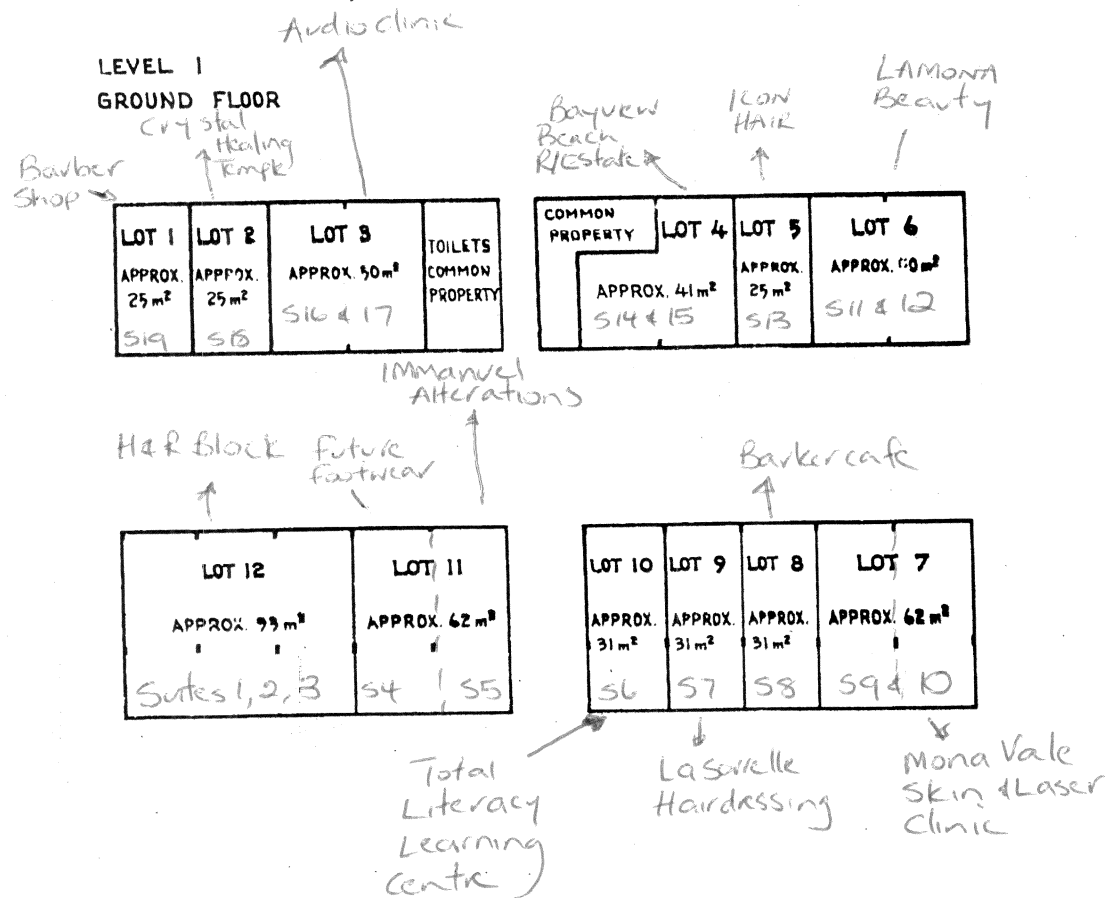 Audio Clinic
LEVEL 1
GROUND FLOOR
Crystal
Healing
Temple
Barber
Shop
Bayview
Beach
R/Estate
ICON
HAIR
LAMONA
Beauty
LOT 1
APPROX.
25 m²
S19
LOT 2
APPROX.
25 m²
S18
LOT 3
APPROX. 50 m²
S16 & 17
TOILETS
COMMON
PROPERTY
COMMON
PROPERTY
LOT 4
APPROX. 41 m²
S14 & 15
LOT 5
APPROX.
25 m²
S13
LOT 6
APPROX.
S11 & 12
IMManuel
Alterations
H&R Block
Future
Footwear
Barkercafe
LOT 12
APPROX. 93 m²
Suites 1, 2, 3
LOT 11
APPROX. 62 m²
S4 S5
LOT 10
APPROX.
31 m²
S6
LOT 9
APPROX.
31 m²
S7
LOT 8
APPROX.
31 m²
S8
LOT 7
APPROX. 62 m²
S9 & 10
Total
Literacy
Learning
Centre
Hairdressing
Mona Vale
Skin & Laser
Clinic